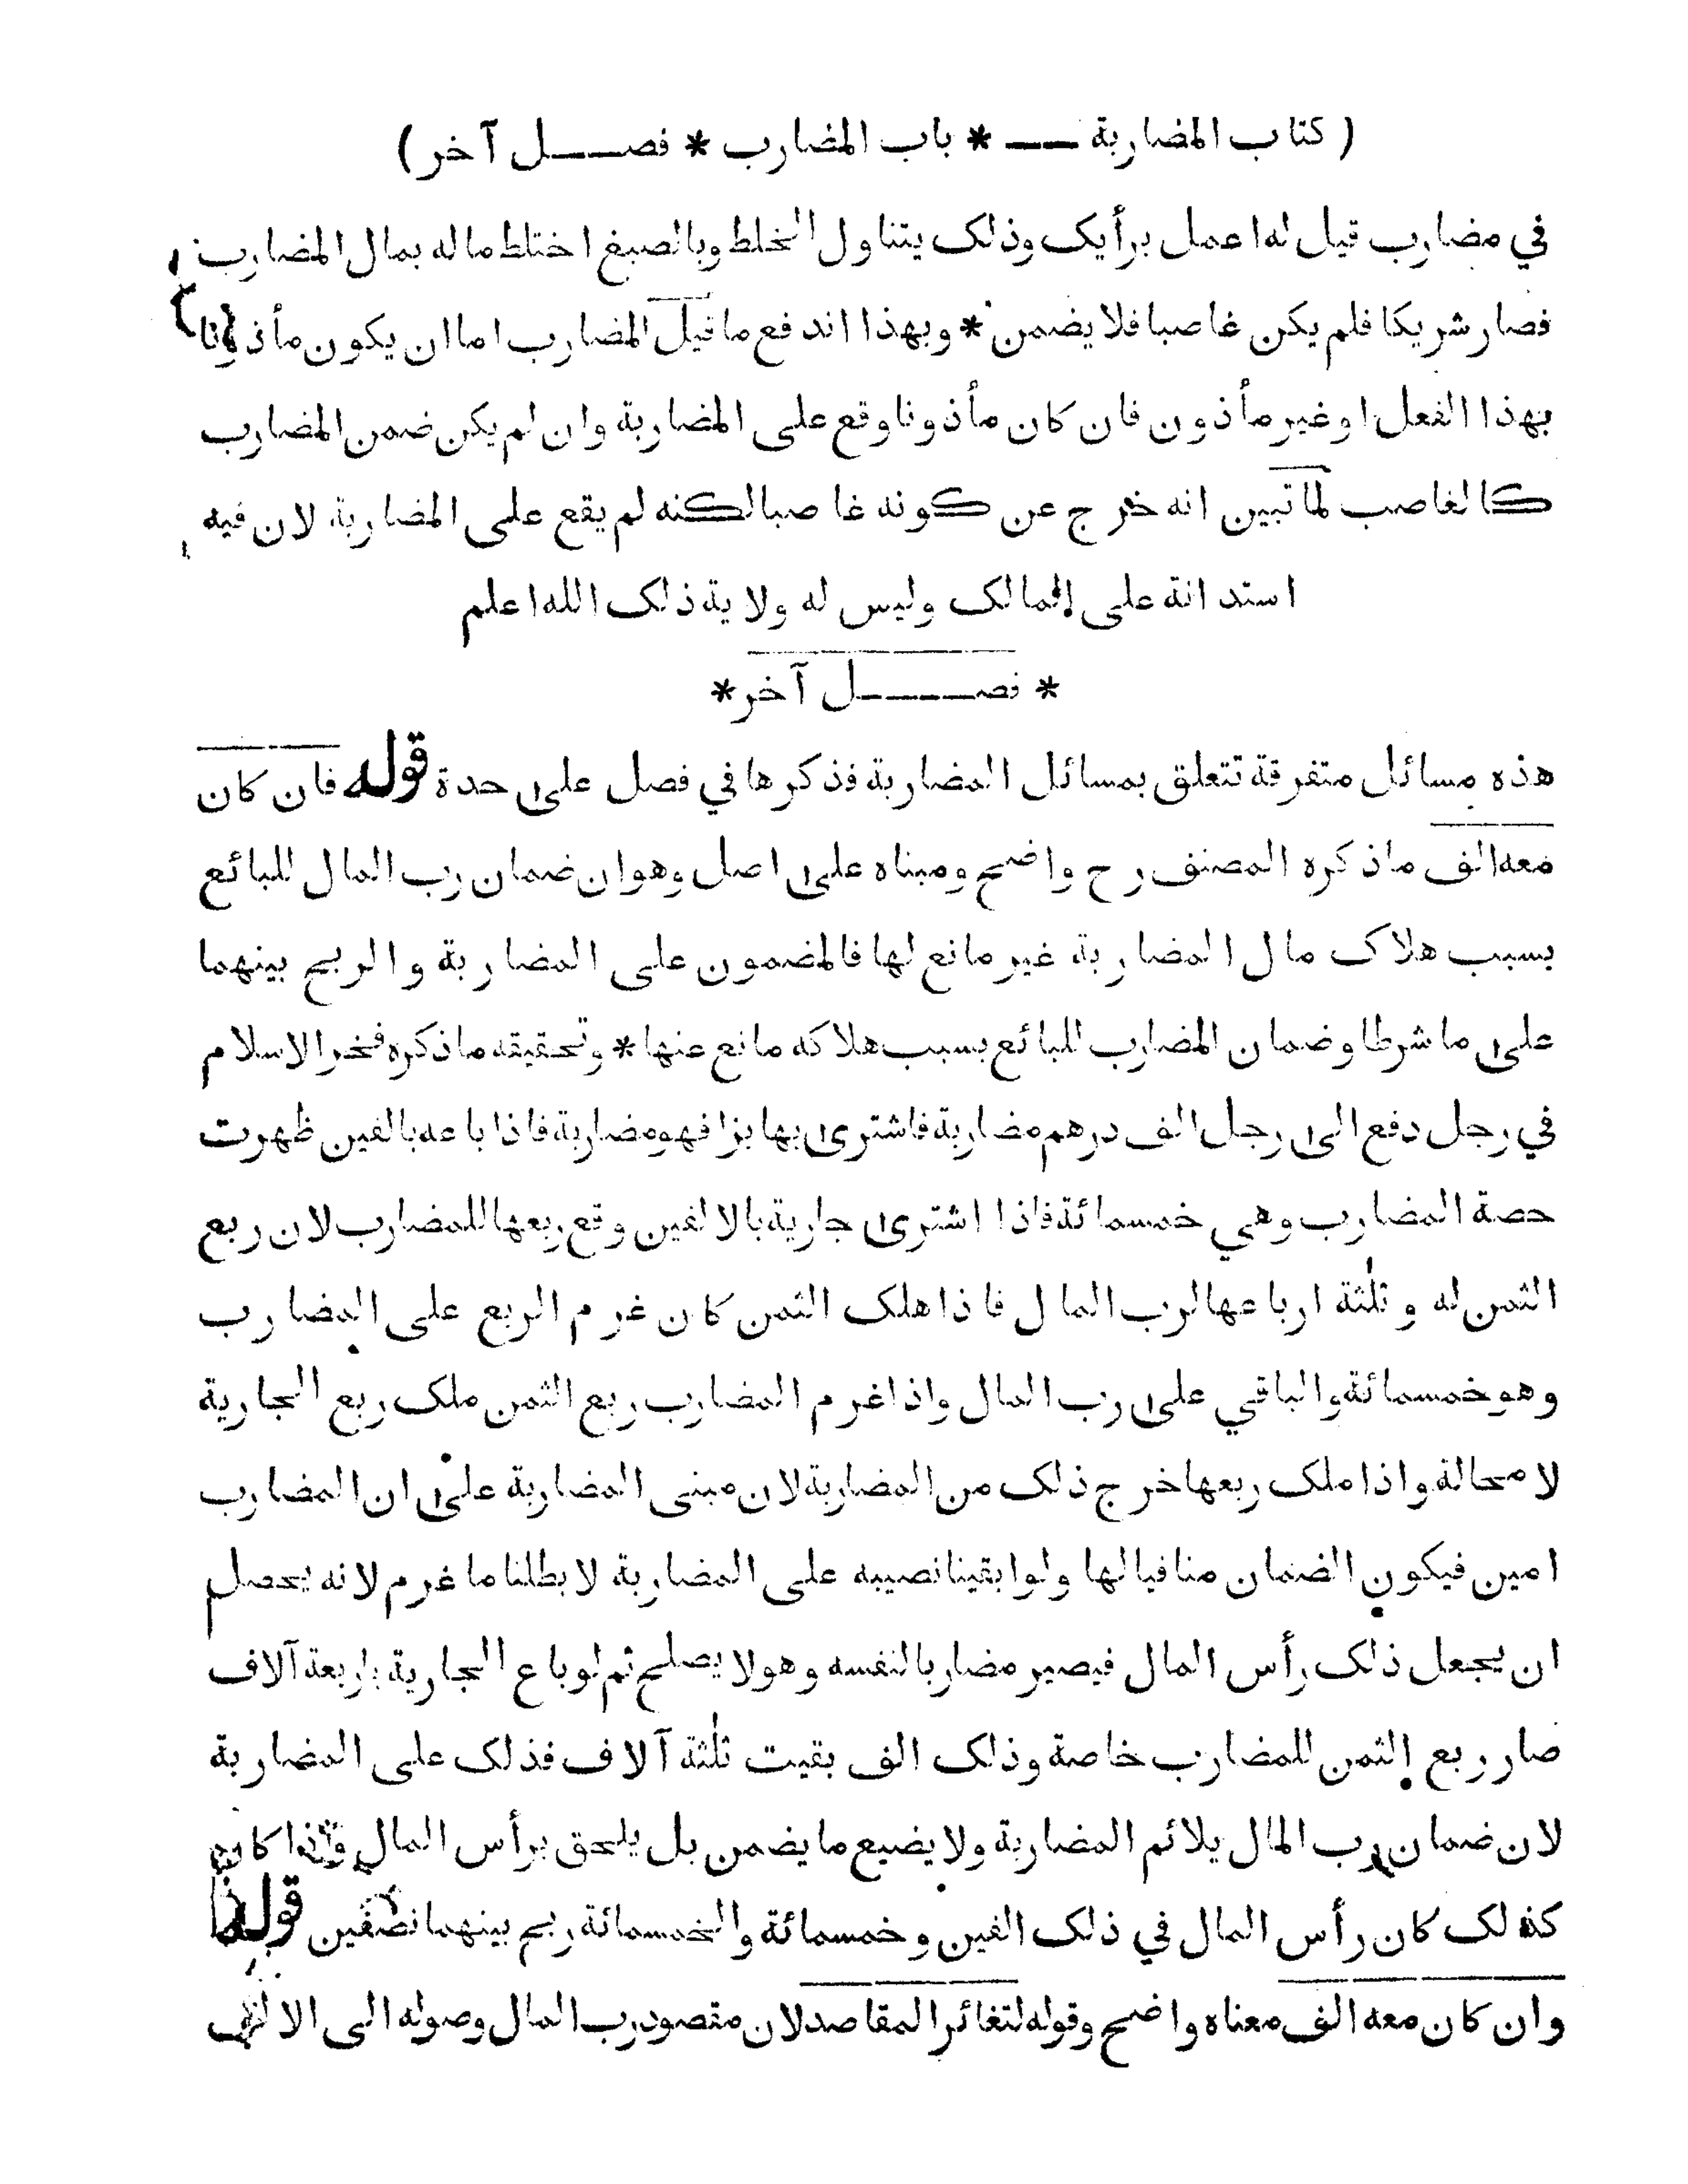 ( كتاب المضاربة — * باب المضارب * فصل آخر )
في مضارب قيل له اعمل برأيك وذلك يتناول الخلط وبالصبغ اختلط ماله بمال المضارب
فصار شريكا فلم يكن غاصبا فلا يضمن * وبهذا اندفع ما قيل المضارب اما ان يكون مأذونا
بهذا الفعل او غير مأذون فان كان مأذونا وقع على المضاربة وان لم يكن ضمن المضارب
كالغاصب لما تبين انه خرج عن كونه غاصبا لكنه لم يقع على المضاربة لان فيه
استدانة على المالك وليس له ولاية ذلك الله اعلم
* فصل آخر *
هذه مسائل متفرقة تتعلق بمسائل المضاربة فذكرها في فصل على حدة قوله فان كان
معه الف ما ذكره المصنف رح واضح ومبناه على اصل وهو ان ضمان رب المال للبائع
بسبب هلاك مال المضاربة غير مانع لها فالمضمون على المضاربة والربح بينهما
على ما شرطا وضمان المضارب للبائع بسبب هلاكه مانع عنها * وتحقيقه ما ذكره فخر الاسلام
في رجل دفع الى رجل الف درهم مضاربة فاشترى بها بزا فهو مضاربة فاذا باعه بالفين ظهرت
حصة المضارب وهي خمسمائة فاذا اشترى جارية بالالفين وقع ربعها للمضارب لان ربع
الثمن له وثلثة ارباعها لرب المال فاذا هلك الثمن كان غرم الربع على المضارب
وهو خمسمائة والباقي على رب المال واذا غرم المضارب ربع الثمن ملك ربع الجارية
لا محالة واذا ملك ربعها خرج ذلك من المضاربة لان مبنى المضاربة على ان المضارب
امين فيكون الضمان منافيا لها ولو ابقينا نصيبه على المضاربة لابطلنا ما غرم لانه يحصل
ان يجعل ذلك رأس المال فيصير مضاربا لنفسه وهو لا يصلح ثم لو باع الجارية باربعة آلاف
صار ربع الثمن للمضارب خاصة وذلك الف بقيت ثلثة آلاف فذلك على المضاربة
لان ضمان رب المال يلائم المضاربة ولا يضيع ما يضمن بل يلحق برأس المال واذا كان
كذلك كان رأس المال في ذلك الفين وخمسمائة والخمسمائة ربح بينهما نصفين قوله
وان كان معه الف معناه واضح وقوله لتغائر المقاصد لان مقصود رب المال وصوله الى الالف